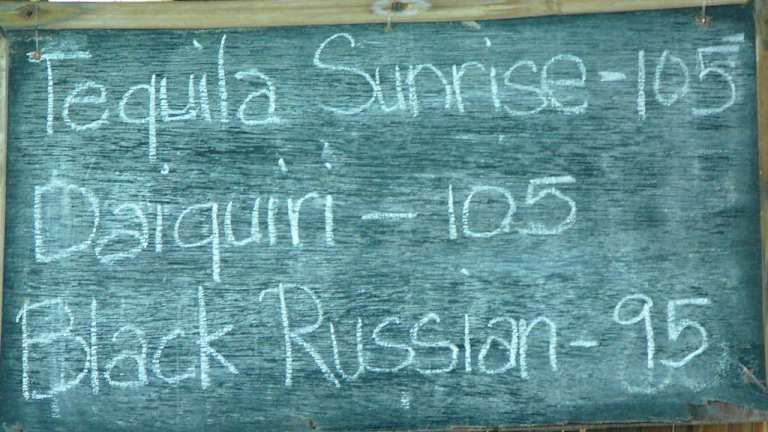 Tequila Sunrise - 105
Daiquiri - 105
Black Russian - 95